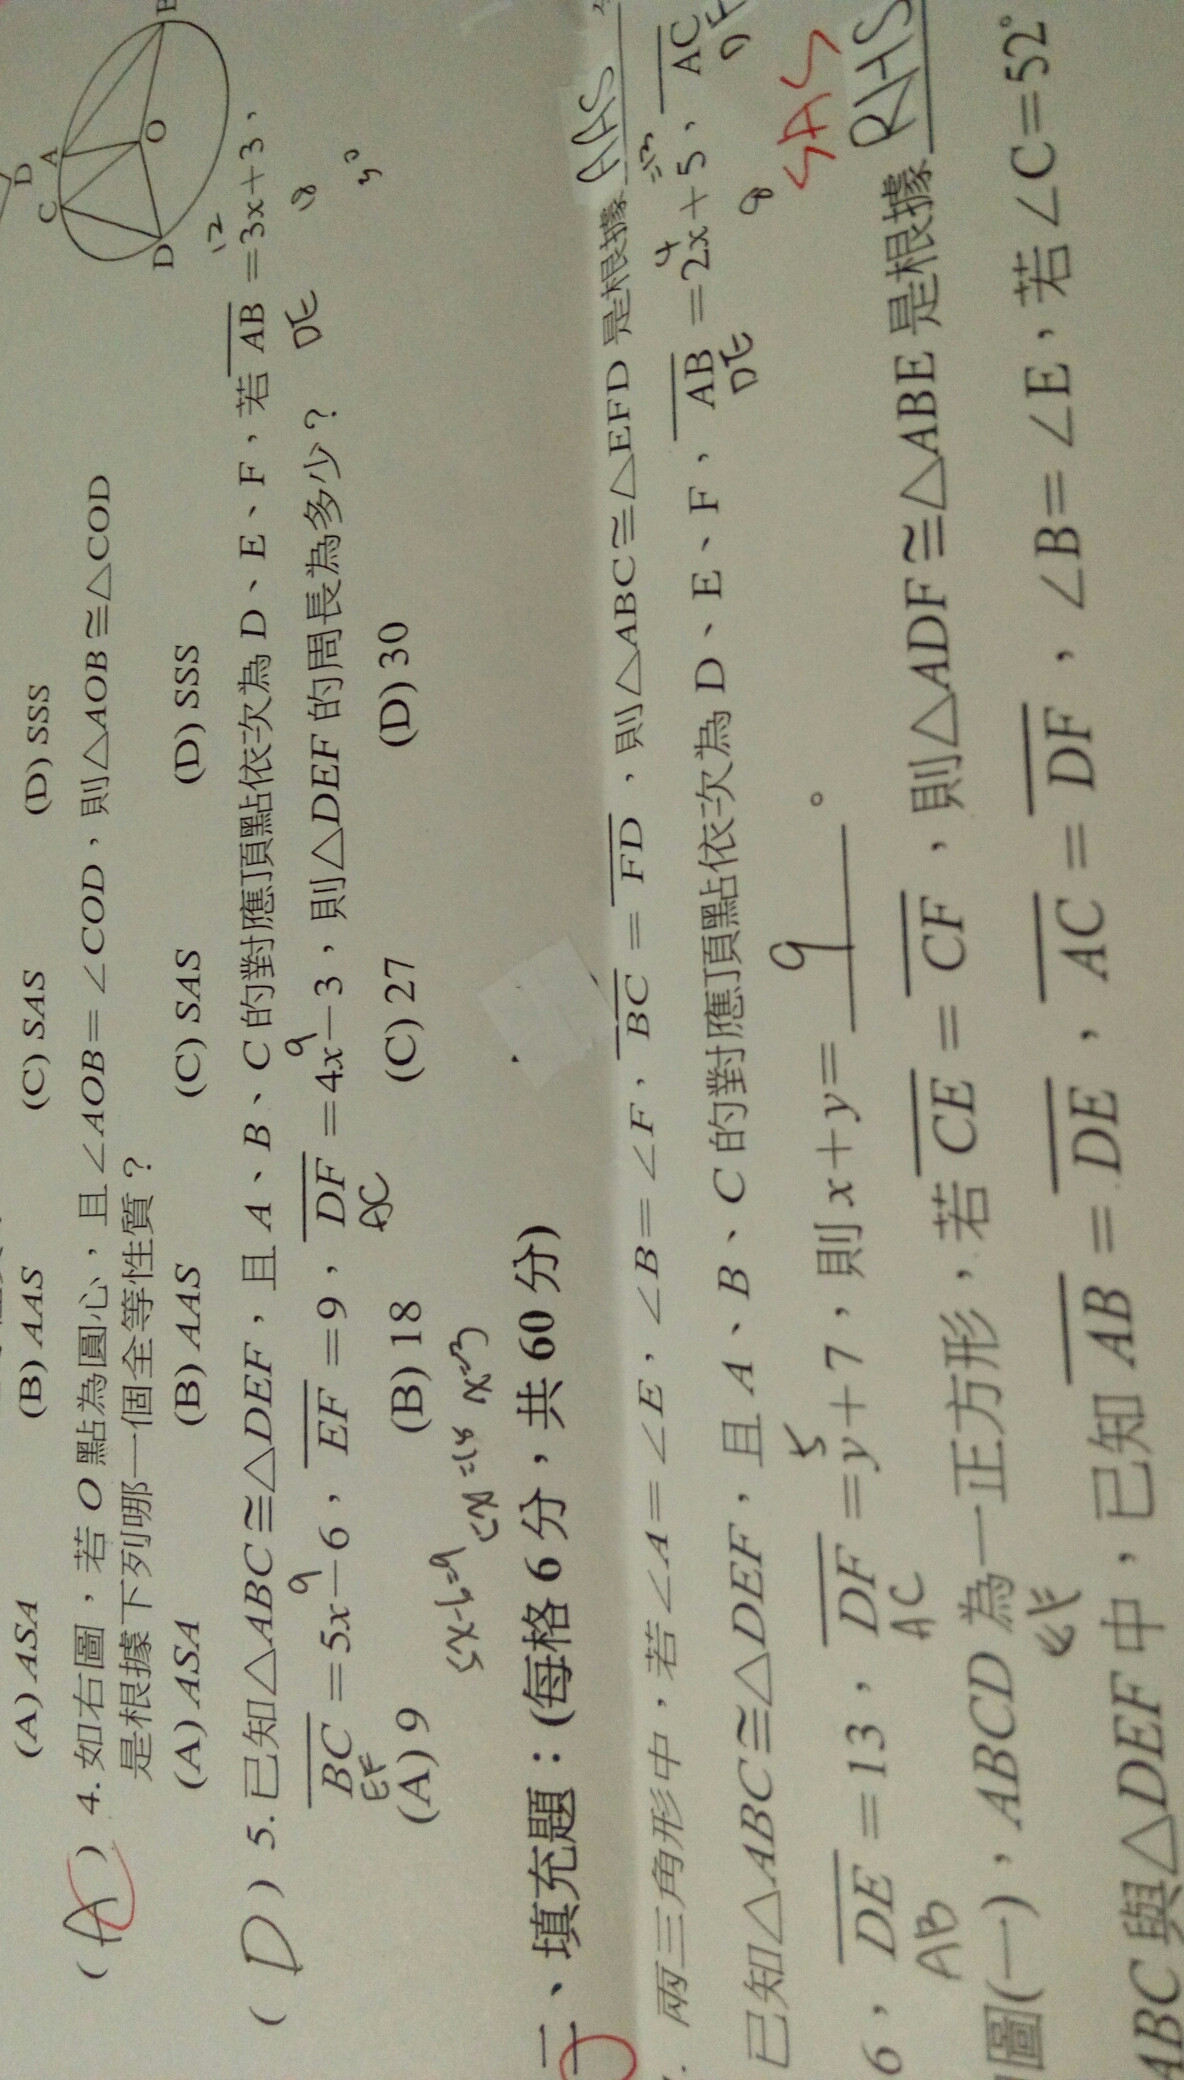 D
C A B
O
D
(A) ASA (B) AAS (C) SAS (D) SSS
( A ) 4. 如右圖，若 O 點為圓心，且∠AOB=∠COD，則△AOB≅△COD
是根據下列哪一個全等性質？
(A) ASA (B) AAS (C) SAS (D) SSS
12
( D ) 5. 已知△ABC≅△DEF，且 A、B、C 的對應頂點依次為 D、E、F，若 AB =3x+3，
9 9 DE 18
BC =5x-6，EF =9，DF =4x-3，則△DEF 的周長為多少？
EF AC
(A) 9 (B) 18 (C) 27 (D) 30
5x-6=9 x=3
二、填充題：(每格 6 分，共 60 分)
兩三角形中，若∠A=∠E，∠B=∠F，BC = FD，則△ABC≅△EFD 是根據 AAS
4 =13
已知△ABC≅△DEF，且 A、B、C 的對應頂點依次為 D、E、F，AB =2x+5，AC
DE 8 DF
5 9
6，DE =13，DF =y+7，則 x+y= 。
AB AC
SAS
圖(一)，ABCD 為一正方形，若 CE = CF，則△ADF≅△ABE 是根據 RHS
ABC 與△DEF 中，已知 AB = DE，AC = DF，∠B=∠E，若∠C=52°